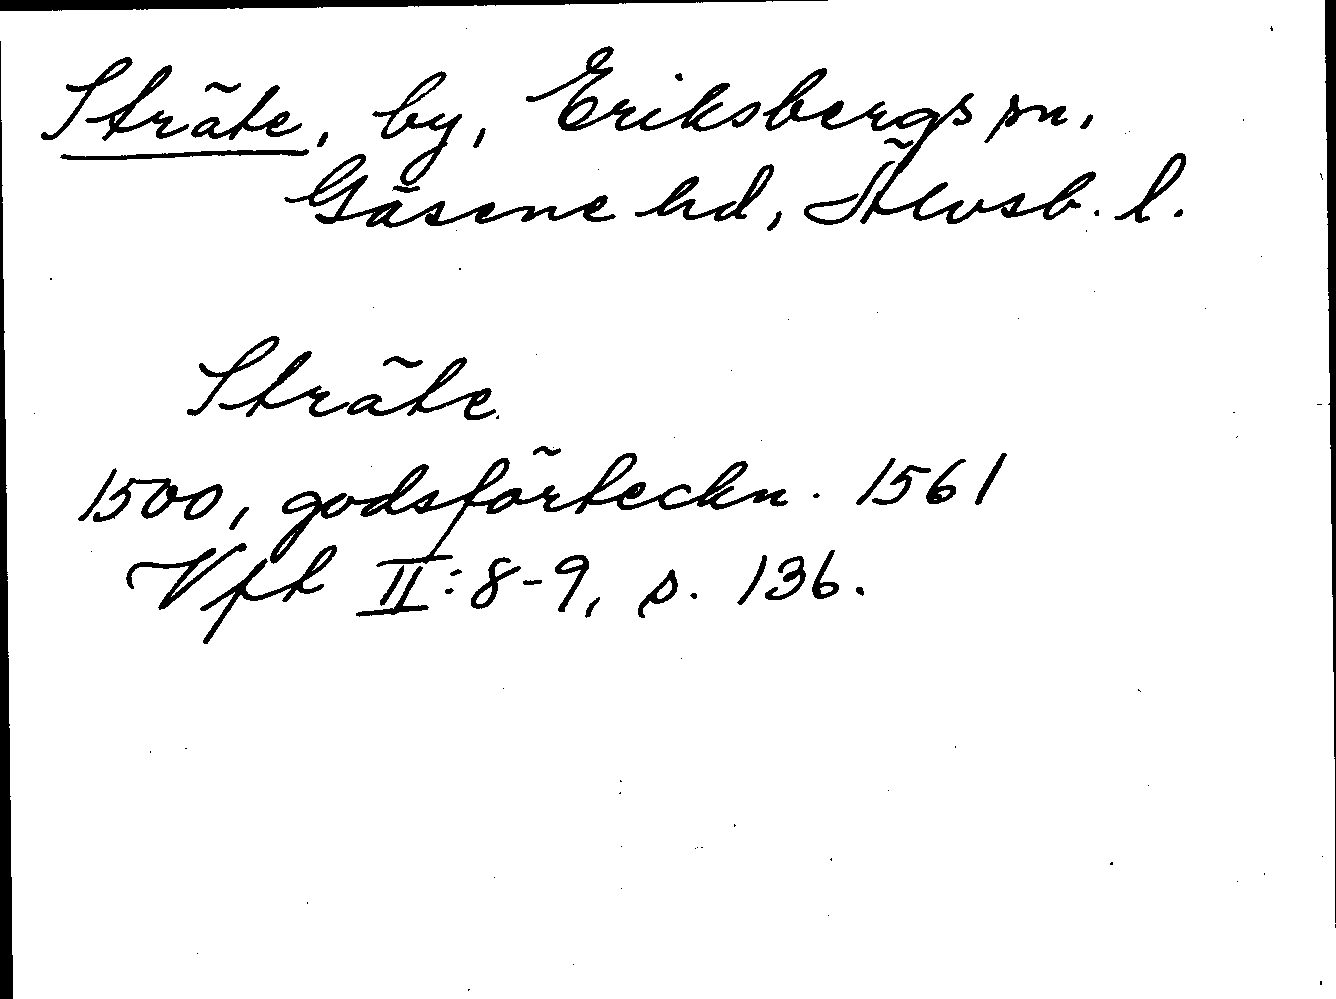 Sträte, by, Eriksbergs sn,
Gäsene hd, Älvsb. l.
Sträte
1500, godsförteckn. 1561
Vft II:8-9, s. 136.